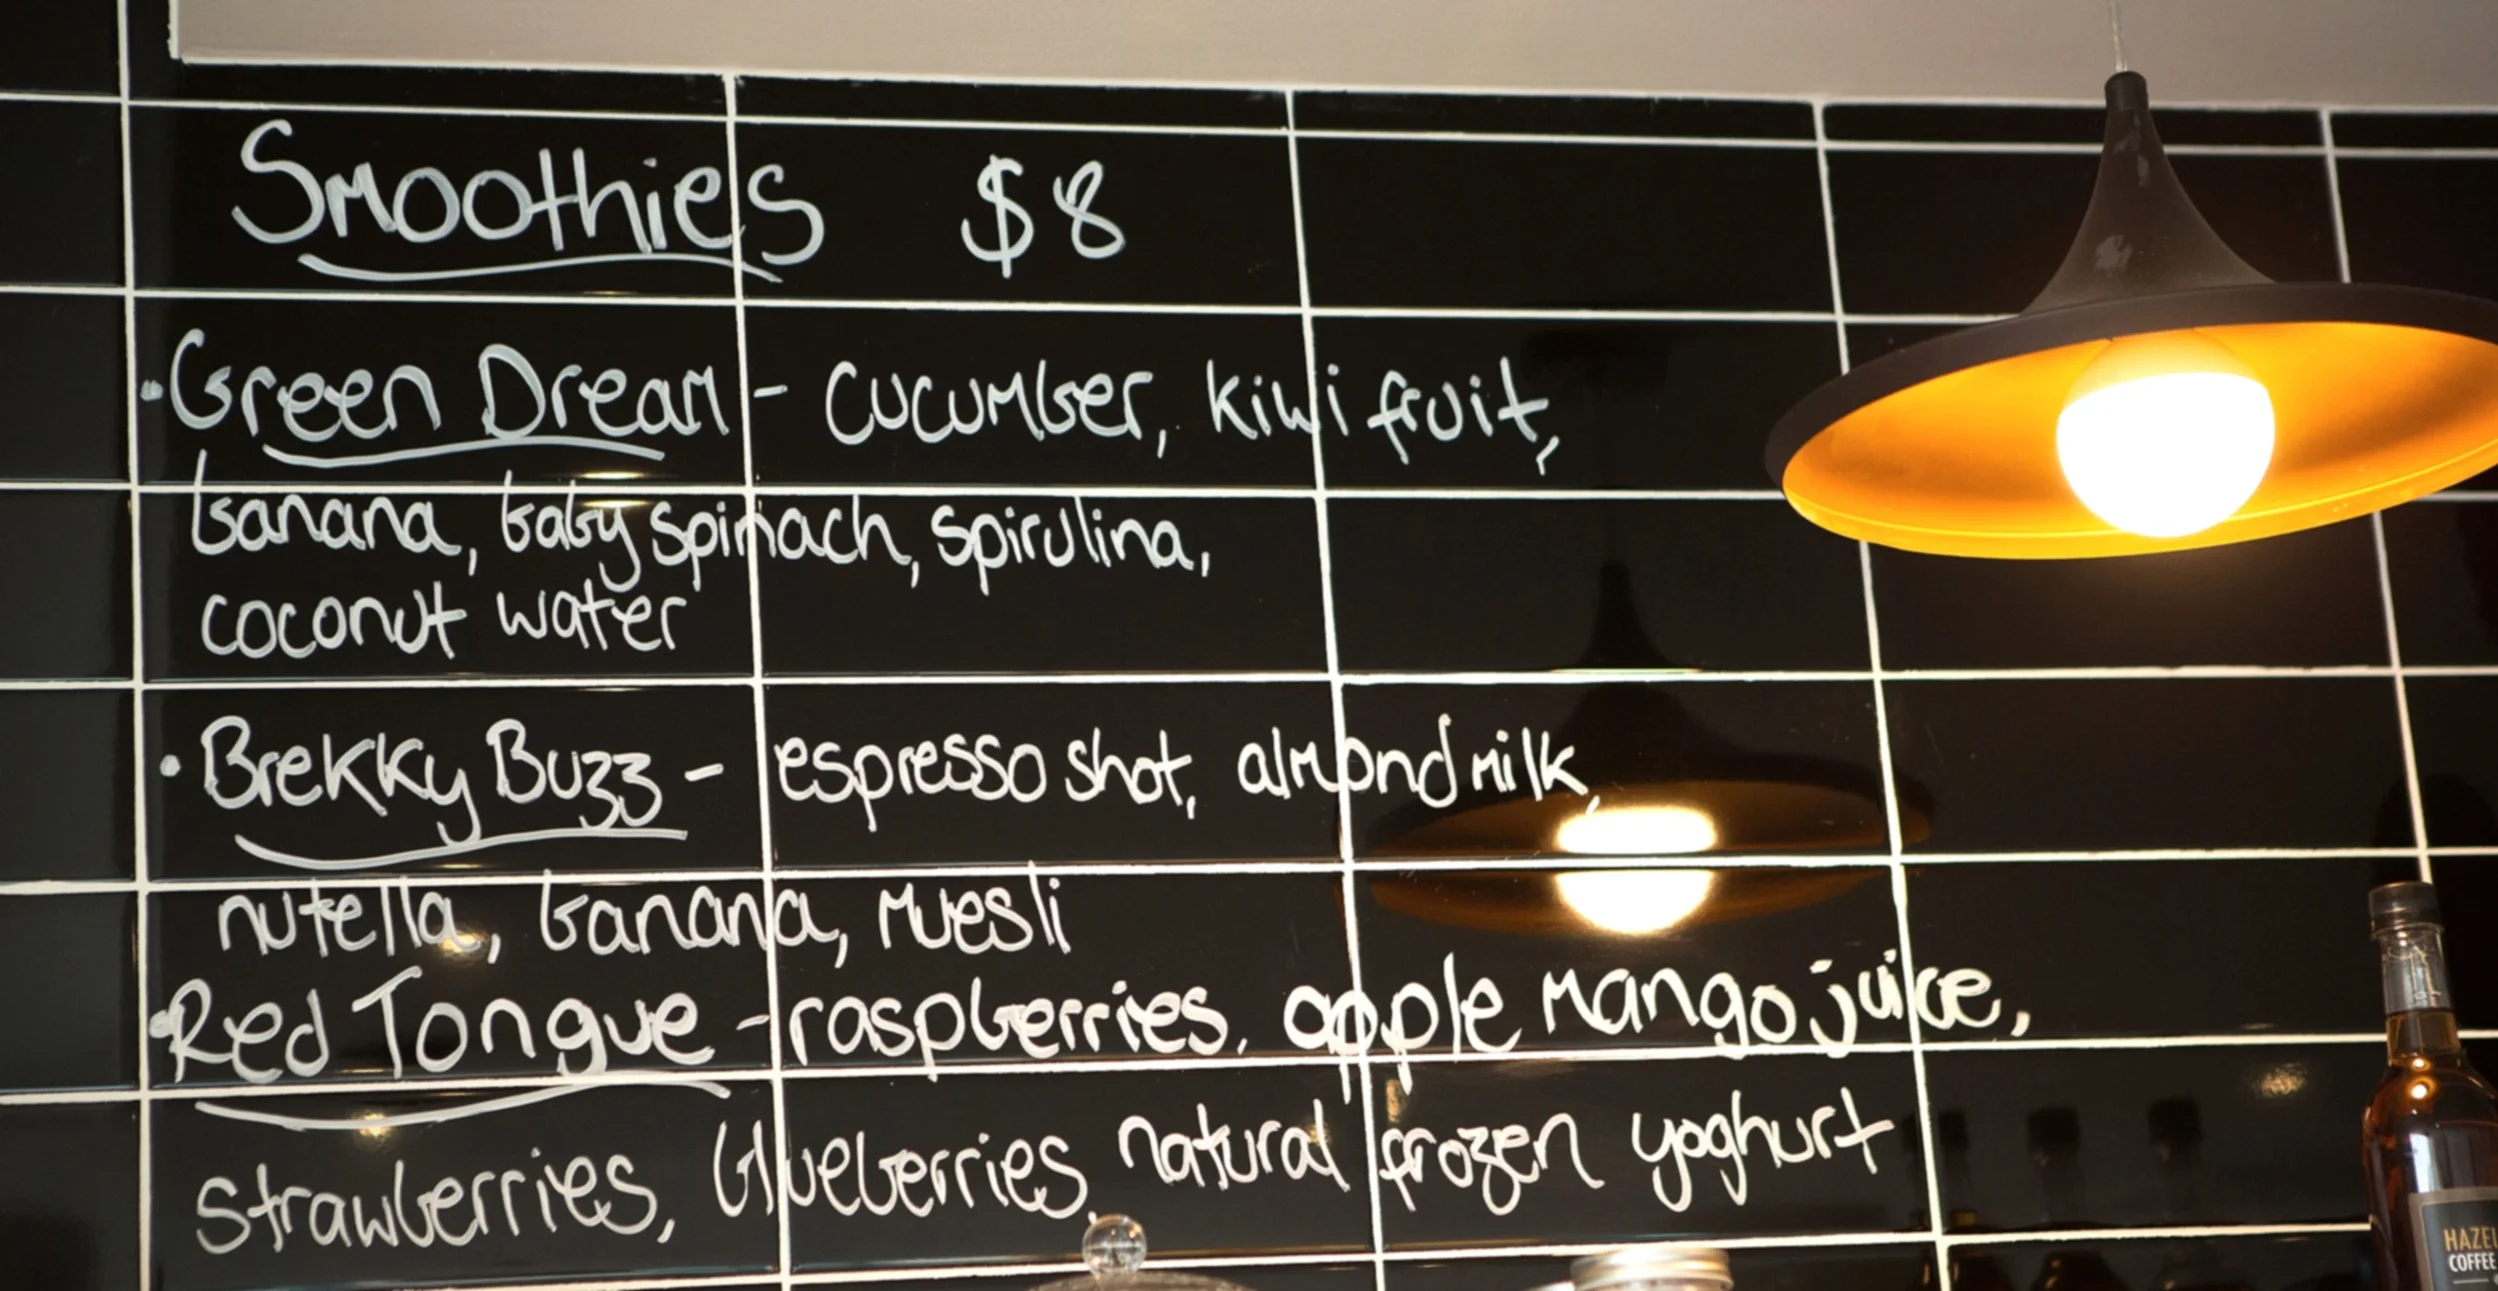 Smoothies $8
• Green Dream - cucumber, kiwi fruit,
banana, baby spinach, spirulina,
coconut water
• Brekky Buzz - espresso shot, almond milk,
nutella, banana, muesli
• Red Tongue - raspberries, apple mango juice,
strawberries, blueberries, natural frozen yoghurt
COFFEE